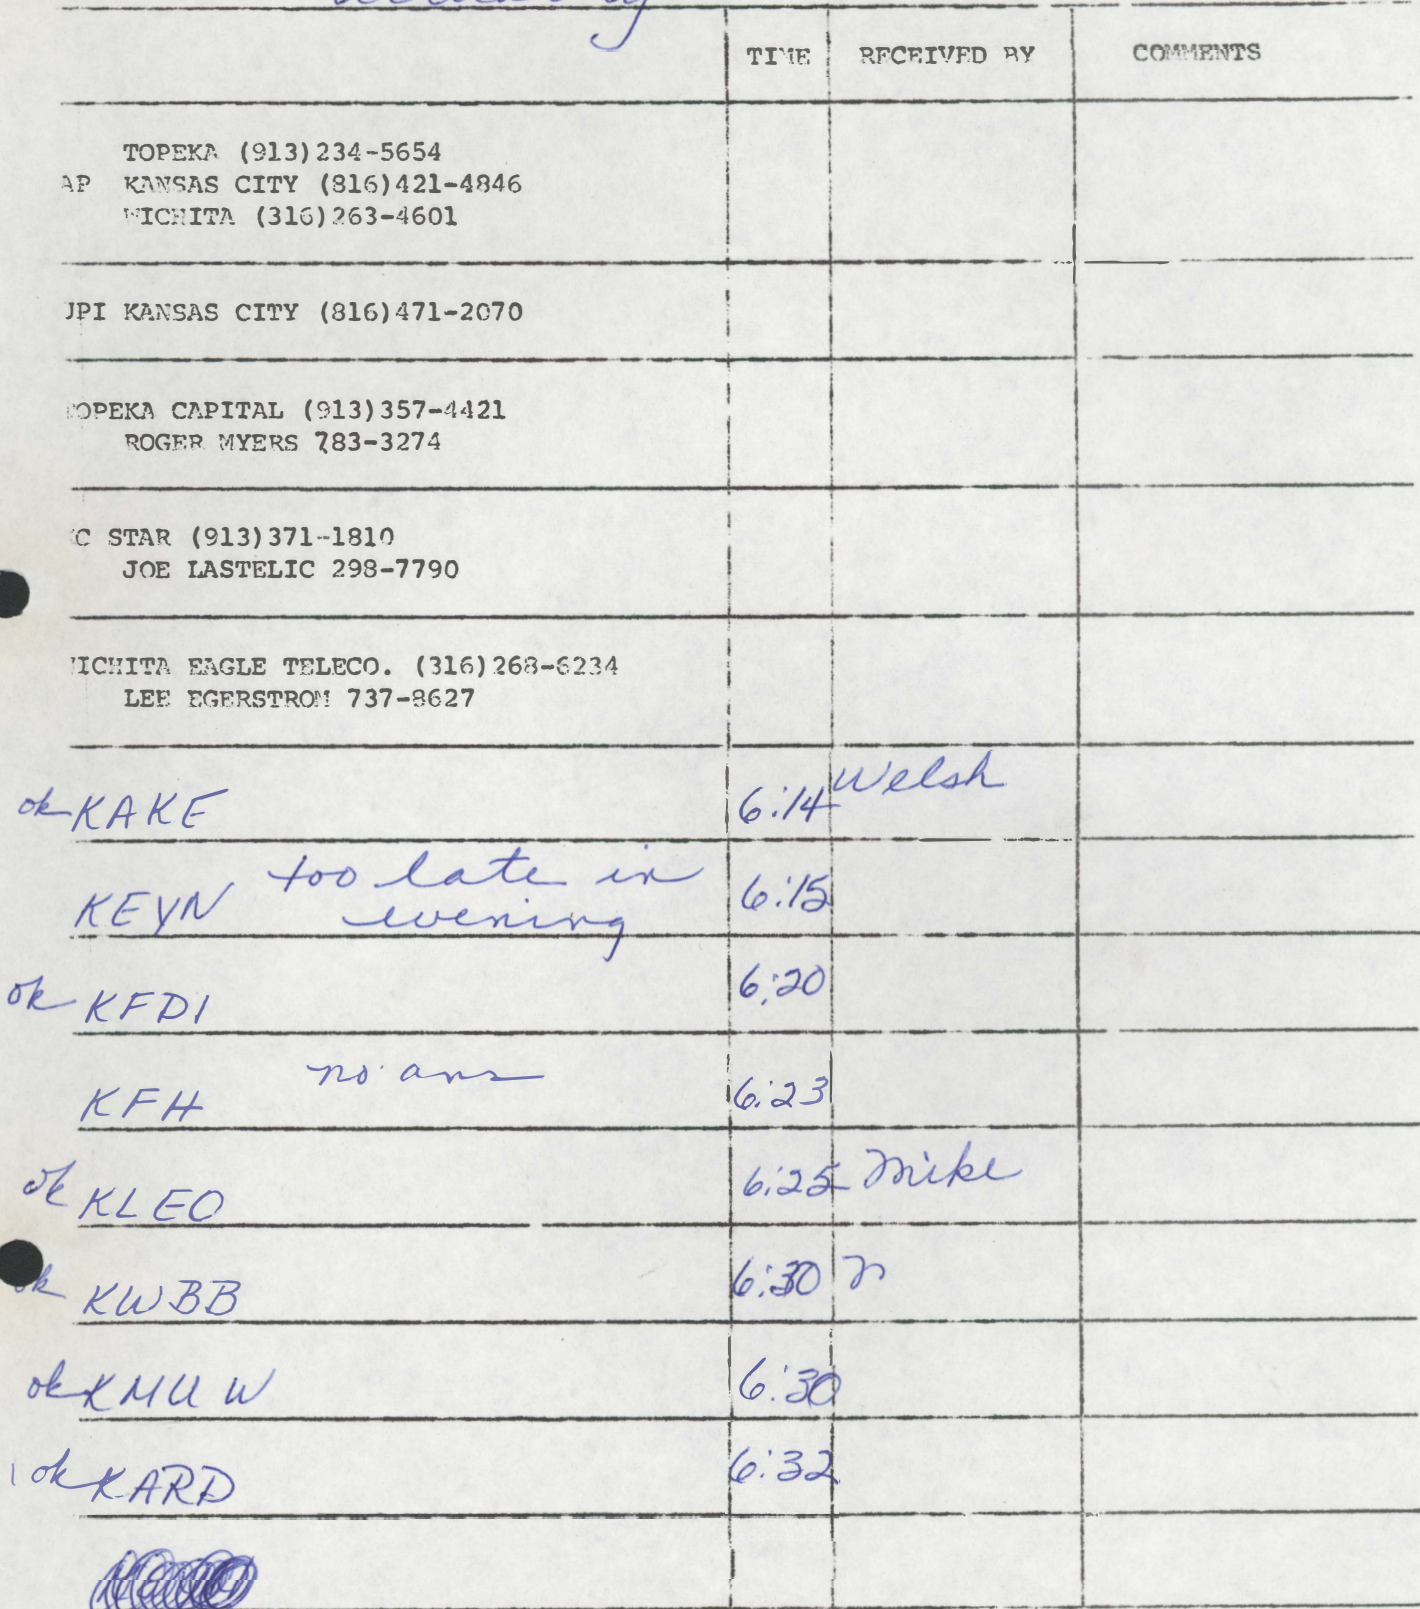 TIME RECEIVED BY COMMENTS
TOPEKA (913)234-5654
AP KANSAS CITY (816)421-4846
WICHITA (316)263-4601
UPI KANSAS CITY (816)471-2070
TOPEKA CAPITAL (913)357-4421
ROGER MYERS 783-3274
KC STAR (913)371-1810
JOE LASTELIC 298-7790
WICHITA EAGLE TELECO. (316)268-6234
LEE EGERSTROM 737-8627
ok KAKE 6:14 Welsh
KEYN too late in 6:15
evening
ok KFDI 6:20
KFH no ans 6:23
ok KLEO 6:25 Mike
ok KWBB 6:30
ok KMUW 6:30
ok KARD 6:32